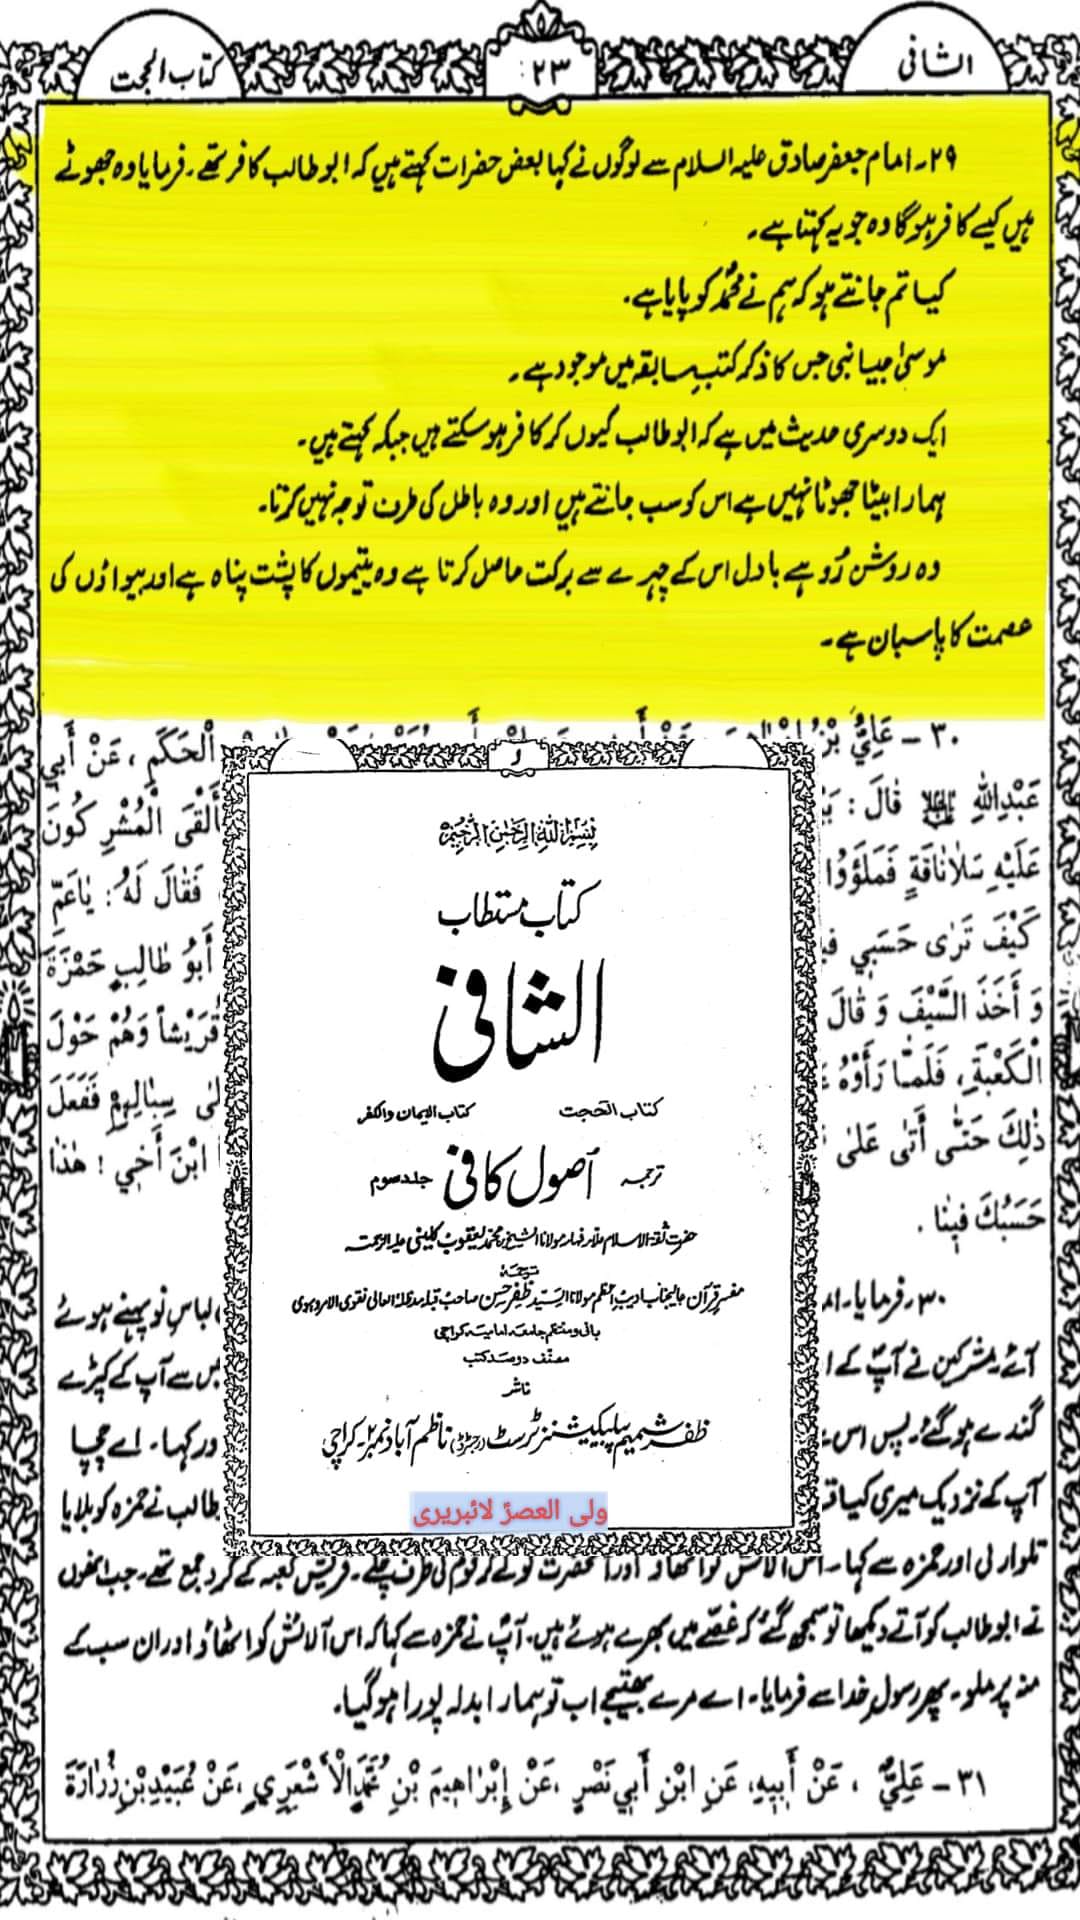 الشافی
۲۳
کتاب الحجت
۲۹۔ امام جعفر صادق علیہ السلام سے لوگوں نے کہا بعض حضرات کہتے ہیں کہ ابو طالب کافر تھے۔ فرمایا وہ جھوٹے
ہیں کیسے کافر ہوگا وہ جو یہ کہتا ہے۔
کیا تم جانتے ہو کہ ہم نے محمدؐ کو پایا ہے۔
موسیٰ جیسا نبی جس کا ذکر کتب سابقہ میں موجود ہے۔
ایک دوسری حدیث میں ہے کہ ابو طالب کیوں کر کافر ہو سکتے ہیں جبکہ کہتے ہیں۔
ہمارا بیٹا جھوٹا نہیں ہے اس کو سب جانتے ہیں اور وہ باطل کی طرف توجہ نہیں کرتا۔
وہ روشن رُو ہے بادل اس کے چہرے سے برکت حاصل کرتا ہے وہ یتیموں کا پشت پناہ ہے اور بیواؤں کی
عصمت کا پاسبان ہے۔
۳۰ - عَلِيُّ بْنُ الْحَكَمِ ، عَنْ أَبِي
عَبْدِاللهِ قَالَ : أَلْقَى الْمُشْرِكُونَ
عَلَيْهِ سَلَانَاقَةٍ فَمَلَؤُوا فَقَالَ لَهُ : يَاعَمِّ
كَيْفَ تَرَى حَسَبِي أَبُو طَالِبٍ حَمْزَةَ
وَ أَخَذَ السَّيْفَ وَ قَالَ قُرَيْشاً وَهُمْ حَوْلَ
الْكَعْبَةِ، فَلَمَّا رَأَوْهُ سِبَالِهِمْ فَفَعَلَ
ذٰلِكَ حَتَّى أَتَى عَلَى ابْنَ أَخِي ! هٰذَا
حَسَبُكَ فِينَا .
۳۰۔ فرمایا۔ لباس نو پہنے ہوئے
آئے مشرکین نے آپ کے جس سے آپ کے کپڑے
گندے ہو گئے۔ پس اس اور کہا۔ اے چچا
آپ کے نزدیک میری کیا طالب نے حمزہ کو بلایا
تلوار لی اور حمزہ سے کہا۔ قریش کعبہ کے گرد جمع تھے۔ جب انھوں
نے ابو طالب کو آتے دیکھا تو سمجھ گئے کہ غصے میں بھرے ہوئے ہیں۔ آپ نے حمزہ سے کہا کہ اس آلائش کو اٹھاؤ اور ان سب کے
منہ پر ملو۔ پھر رسول خدا سے فرمایا۔ اے مرے بھتیجے اب تو ہمارا بدلہ پورا ہوگیا۔
۳۱ - عَلِيٌّ ، عَنْ أَبِيهِ، عَنِ ابْنِ أَبِي نَصْرٍ ، عَنْ إِبْرَاهِيمَ بْنِ مُحَمَّدٍ الْأَشْعَرِيِ ، عَنْ عُبَيْدِ بْنِ زُرَارَةَ
بسم اللہ الرحمٰن الرحیم
کتاب مستطاب
الشافی
کتاب الحجت کتاب الایمان والکفر
ترجمہ اصول کافی جلد سوم
حضرت ثقۃ الاسلام علامہ فہامہ مولانا الشیخ محمد یعقوب کلینی علیہ الرحمہ
ترجمہ
مفسر قرآن عالیجناب ادیب اعظم مولانا السید ظفر حسن صاحب قبلہ مدظلہ العالی نقوی الامروہوی
بانی و منتظم جامعہ امامیہ کراچی
مصنف دو صد کتب
ناشر
ظفر شمیم پبلیکیشنز ٹرسٹ (رجسٹرڈ) ناظم آباد نمبر ۲۔ کراچی
ولی العصرؑ لائبریری